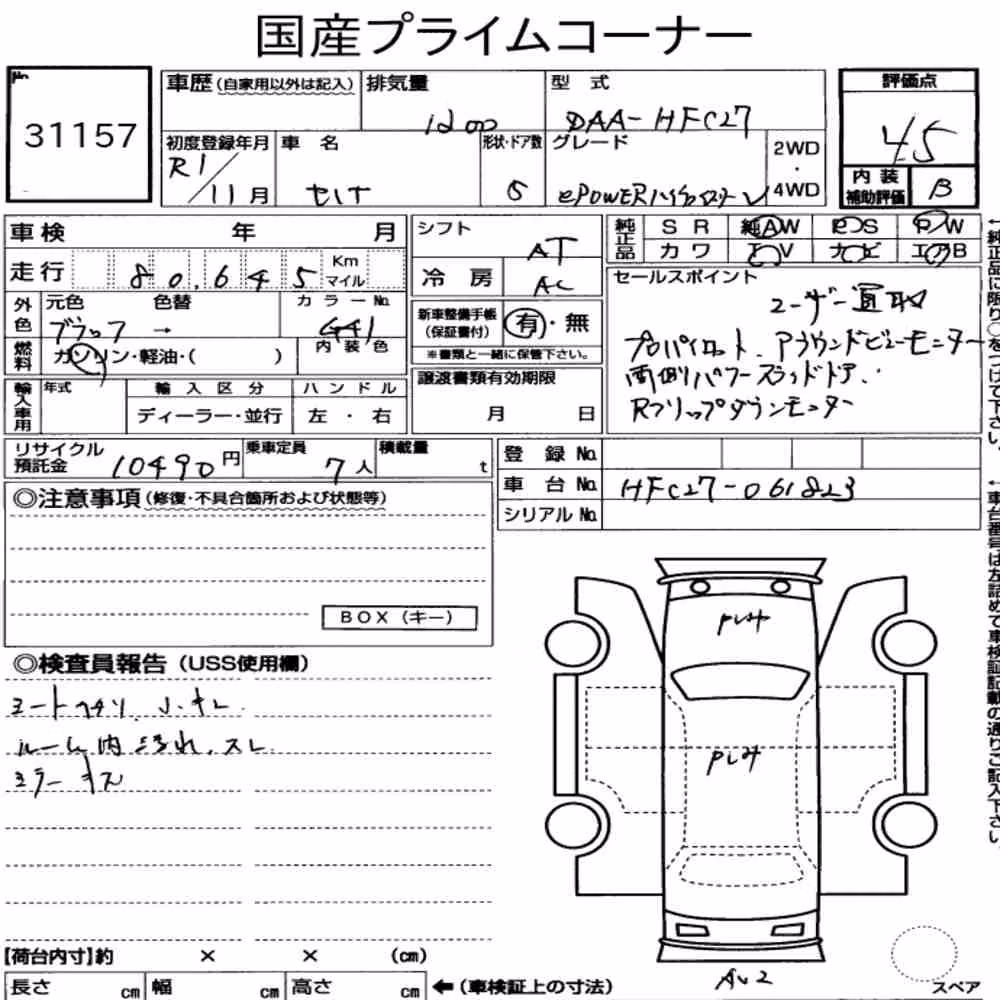 国産プライムコーナー
No.
31157
車歴 (自家用以外は記入) 排気量 型 式
1200 DAA-HFC27
評価点
4.5
初度登録年月 車 名 形状・ドア数 グレード 2WD・4WD
R1/11月 セレナ 5 ePOWERハイウェイスターV
内装補助評価 B
車検 年 月
シフト AT
純正品 SR 純AW PS PW
カワ TV ナビ エアB
走行 80,645 Km マイル
冷房 AC
セールスポイント
ユーザー買取
プロパイロット、アラウンドビューモニター
両側パワースライドドア、
Rフリップダウンモニター
外色 元色 色替 カラーNo.
ブラック → G41
新車整備手帳 (保証書付) 有・無
※書類と一緒に保管下さい。
燃料 ガソリン・軽油・( ) 内装色
譲渡書類有効期限
月 日
輸入車用 年式 輸入区分 ハンドル
ディーラー・並行 左・右
リサイクル預託金 10490円 乗車定員 7人 積載量 t
登録No.
車台No. HFC27-061823
シリアルNo.
◎注意事項 (修復・不具合箇所および状態等)
BOX(キー)
◎検査員報告 (USS使用欄)
シートヘタリ、
ルーム内汚れ、スレ
ミラーキズ
【荷台内寸】約 × × (cm)
長さ cm 幅 cm 高さ cm ←(車検証上の寸法)
A U2
スペア
←純正品に限り○をつけて下さい。
←車台番号は左詰めで車検証記載の通りご記入下さい。